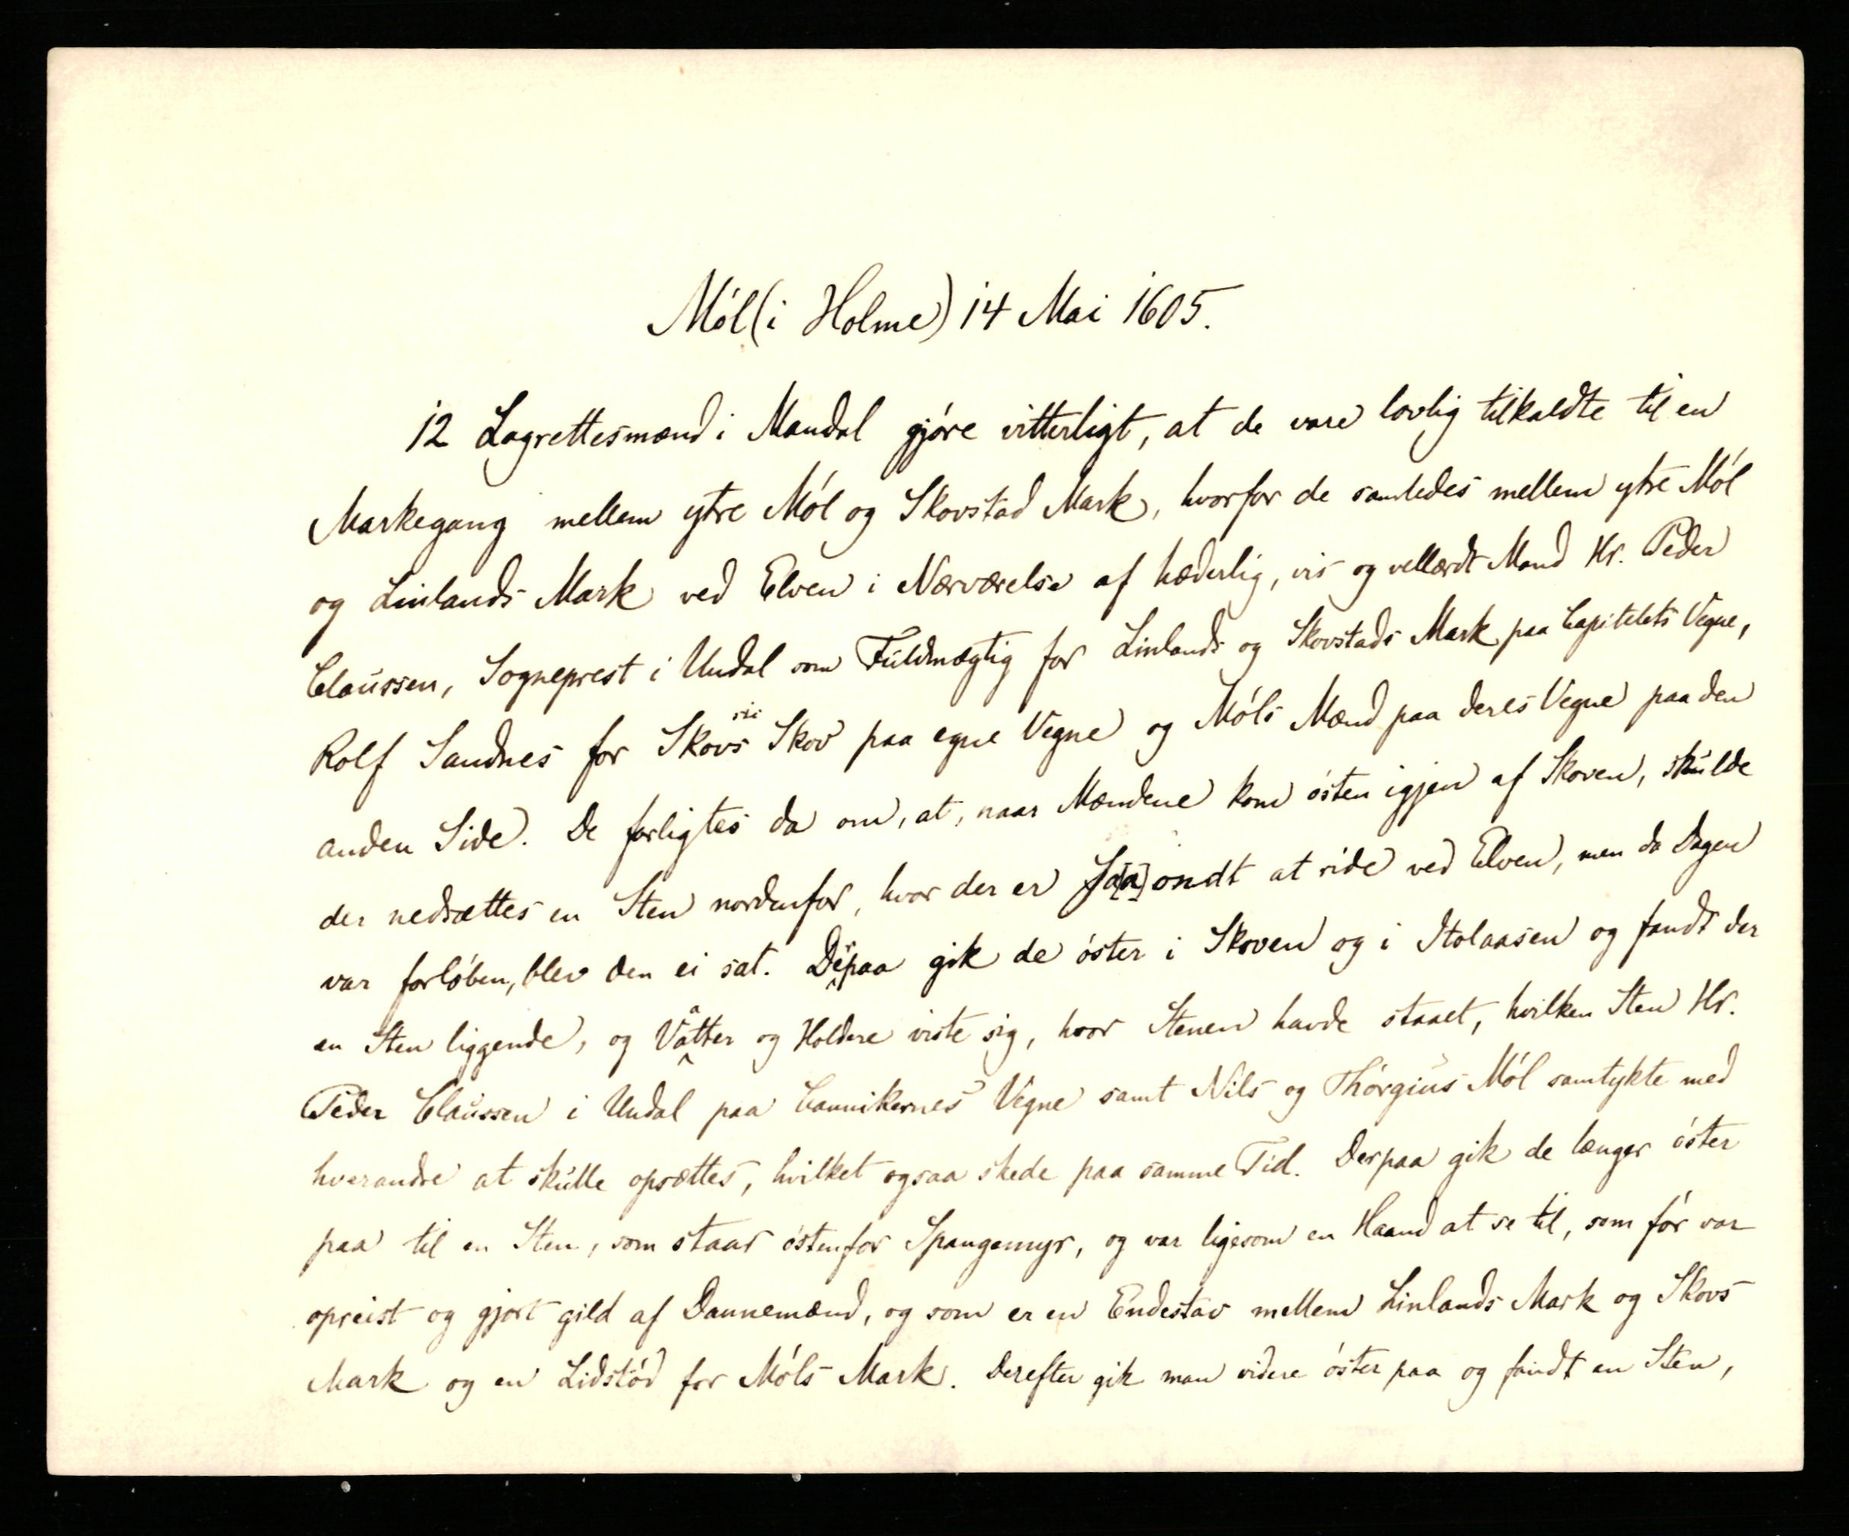 Mól (i Holme) 14 Mai 1605.
12 Lagrettesmænd i Mandal gjóre vitterligt, at de vare lovlig tilkaldte til en
Markegang mellem ytre Mól og Skovstad Mark, hvorfor de samledes mellem ytre Mól
og Linlands Mark ved Elven i Nærværelse af hæderlig, vis og vellærdt Mand Hr. Peder
Claussen, Sogneprest i Undal som Fuldmægtig for Linlands og Skovstads Mark paa Capitelets Vegne,
Rolf Sandnes for Skovs sic Skov paa egne Vegne og Móls Mænd paa deres Vegne paa den
anden Side. De forligtes da om, at, naar Mændene kom ósten igjen af Skoven, skulde
der nedsættes en Sten nordenfor, hvor der er S[aa] ondt at ride ved Elven, men da Dagen
var forlóben, blev den ei sat. Derpaa gik de óster i Skoven og i Stolaasen og fandt der
en Sten liggende, og Vatter og Holdere viste sig, hvor Stenen havde staaet, hvilken Sten Hr.
Peder Claussen i Undal paa Cannikernes Vegne samt Nils og Thórgius Mól samtykte med
hverandre at skulle opsættes, hvilket ogsaa skede paa samme Tid. Derpaa gik de længer óster
paa til en Sten, som staar óstenfor Spangemyr, og var ligesom en Haand at se til, som fór var
opreist og gjort gild af Dannemænd, og som er en Endestav mellem Linlands Mark og Skovs
Mark og en Lidstód for Móls Mark. Derefter gik man videre óster paa og fandt en Sten,